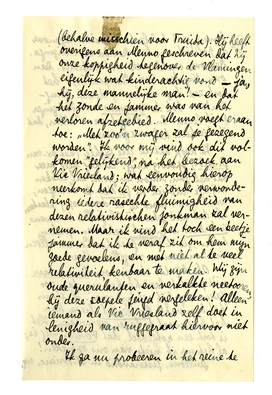 (behalve misschien voor Truida). Hij heeft
overigens aan Menno geschreven dat hij
onze koppigheid tegenover de Vlamingen
eigenlijk wat kinderachtig vond — ja,
hij, deze mannelijke man! — en dat
het zonde en jammer was van het
verloren afzetgebied. Menno voegt eraan
toe: „Met zoo'n zwager zal je gezegend
worden". Ik voor mij vind ook dit vol-
komen „gelijkend", na het bezoek aan
Vic Vriesland; wat eenvoudig hierop
neerkomt dat ik verder zonder verwonde-
ring iedere raschte fluimigheid van
dezen relativistischen jonkman zal ver-
nemen. Maar ik vind het toch een beetje
jammer dat ik te veraf zit om hem mijn
goede gevoelens, en met niet al te veel
relativiteit kenbaar te maken. Wij zijn
oude querulanten en verkalkte
bij deze soepele jeugd vergeleken! Alleen
iemand als Vic Vriesland zelf doet in
lenigheid van ruggegraat hiervoor niet
onder.
Ik ga nu probeeren in het reine te